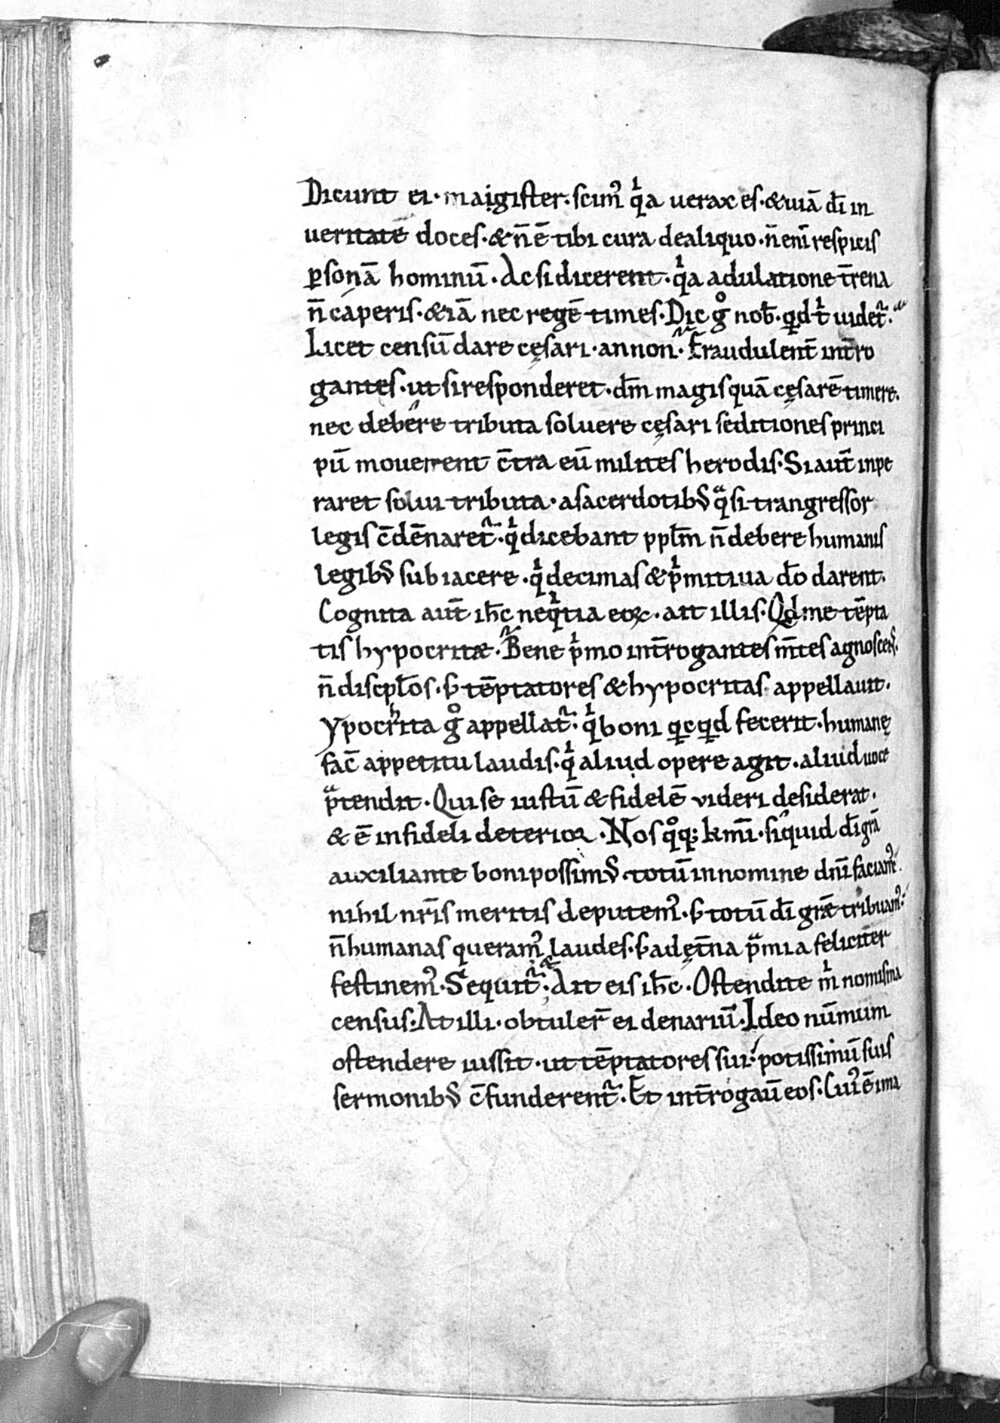 Dicunt ei · maigister · scim᷒ qͥa uerax es · &uiā dī in
ueritate doces · & n̄ ē tibi cura dealiquo · n̄ enī respicis
ꝑsonā hominū · Acsi dicerent · qͥa adulatione t̄rena
n̄ caperis · &iā nec regē times · Dic gͦ nob̄ · qd tͥ uidet᷑ ·
Licet censū dare cęsari · an non · Fraudulent̄ int̄ro
gantes · ut si responderet · dm̄ magis quā cęsarē timere ·
nec debere tributa soluere cęsari seditiones princi
pū mouerent c̄tra eū milites herodis · Si aut̄ inpe
raret solui tributa · a sacerdotibꝰ qͣsi trangressor
legis c̄dēnaret᷑ · qͥ dicebant ppl̄m n̄ debere humanis
legibꝰ subiacere · qͥ decimas & pͥmitiua do̅ darent ·
Cognita aut̄ ih̄c neqͥtia eoꝝ · ait illis · Qd me tēpta
tis hypocritæ · Bene pͥmo int̄rogantes m̄tes agnoscens ·
n̄ discipl̄os · s̄ tēptatores & hypocritas appellauit ·
ypocrita gͦ appellat᷑ · qͥ boni qͥcqͥd fecerit · humanę
fac̄ appetitu laudis · qͥ aliud opere agit · aliud uoce
pͣtendit · Qui se iustū & fidelē videri desiderat ·
& ē infideli deterior · Nos qͦqꝫ kmī · siquid dī grā
auxiliante boni possimꝰ totū in nomine dnī faciam᷒ ·
nihil nr̄is meritis deputem᷒ · s̄ totū dī grǣ tribuam᷒ ·
n̄ humanas queram᷒ laudes · s̄ ad ęt̄na pͣmia feliciter
festinem᷒ · Sequit᷑ · Ait eis ih̄c · Ostendite mͥ nomisma
census · At illi · obtuler̄ ei denariū · Ideo nūmum
ostendere iussit · ut tēptatores sui · potissimū suis
sermonibꝰ c̄funderent᷑ · Et int̄rogau̅ eos · Cui᷒ ē ima